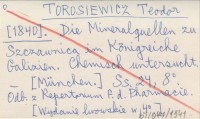 TOROSIEWICZ Teodor
[1840]. Die Mineralquellen zu
Szczawnica im Königreiche
Galizien. Chemisch untersucht.
— [München.] Ss. 14, 8°
Odb. z Repertorium f. d. Pharmacie.
[Wydanie lwowskie w 4°]